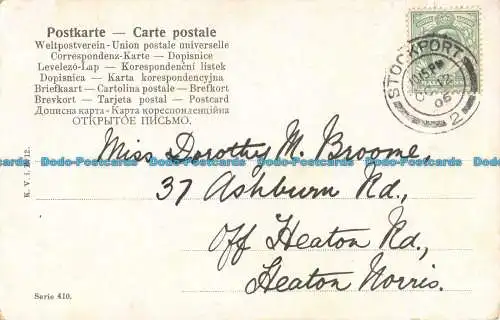 Postkarte — Carte postale
Weltpostverein - Union postale universelle
Correspondenz-Karte — Dopisnice
Levelező-Lap — Korespondenční lístek
Dopisnica — Karta korespondencyjna
Briefkaart — Cartolina postale — Brefkort
Brevkort — Tarjeta postal — Postcard
Дописна карта - Карта кореспонденційна
ОТКРЫТОЕ ПИСЬМО.
STOCKPORT
06
2
Miss Dorothy M. Broome,
37 Ashburn Rd,
Off Heaton Rd,
Heaton Norris.
Dodo-Postcards Dodo-Postcards Dodo-Postcards Dodo-Postcards Dodo-Postcards
Serie 410.